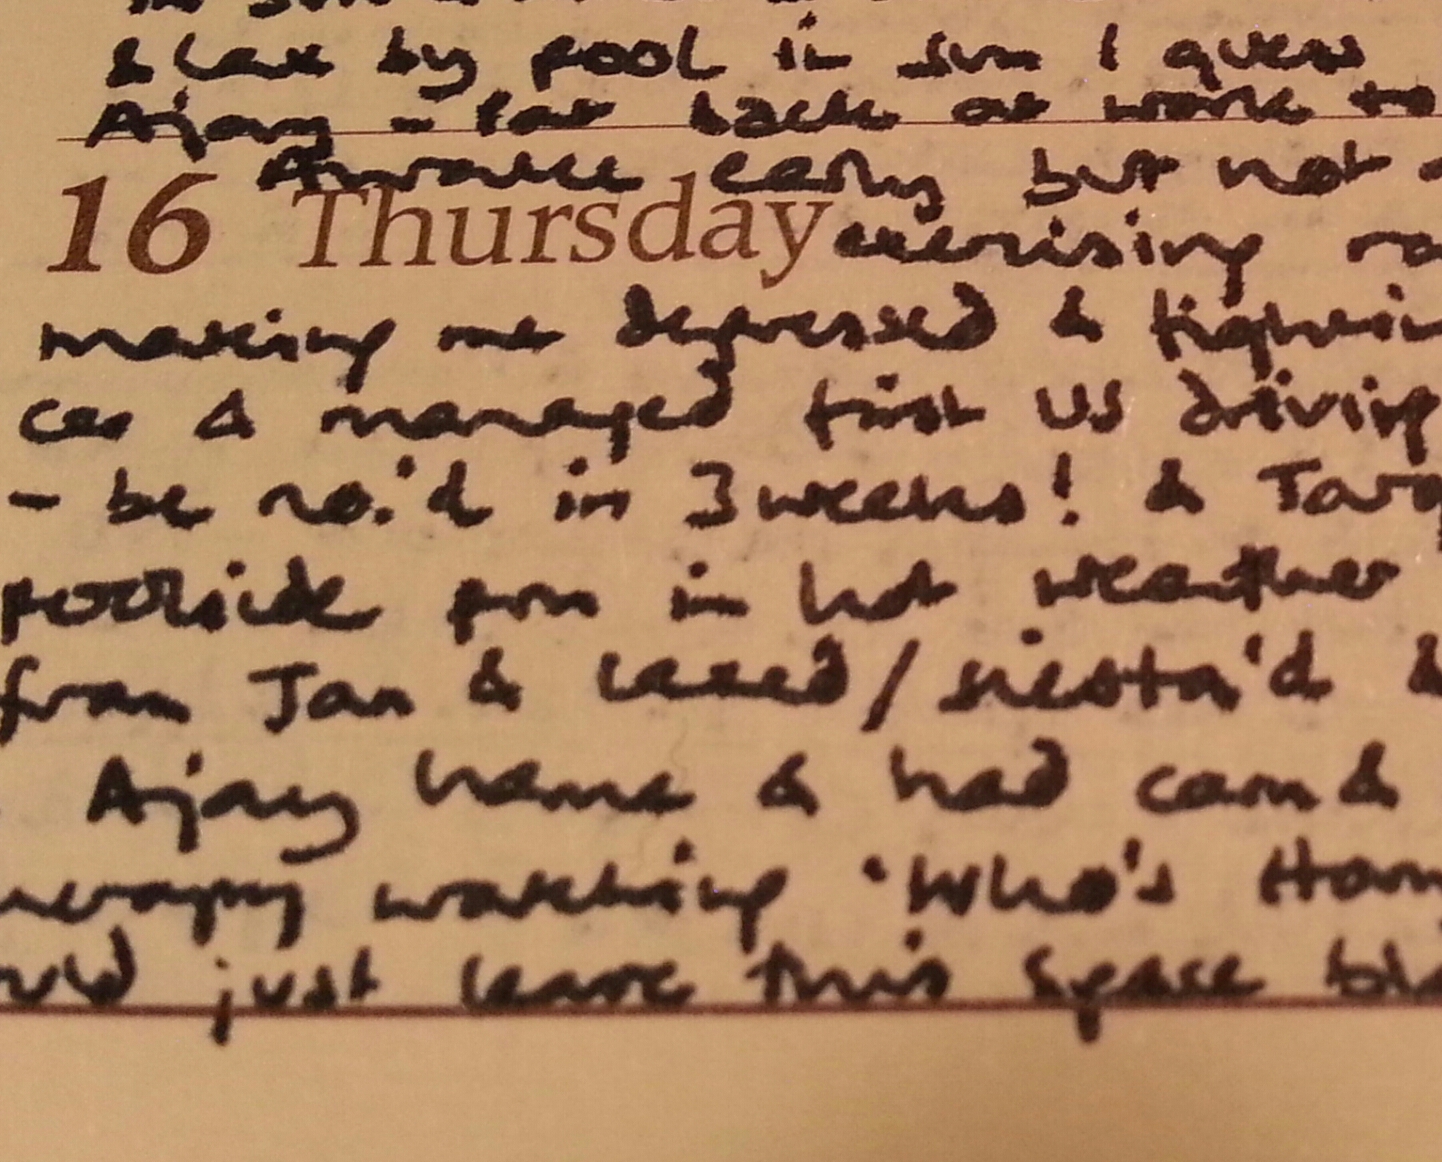 & laze by pool in sun I guess
Ajay - far back at work to
Awake early but not
16 Thursday exercising
making me depressed &
car & managed first US driving
- be no.'d in 3 weeks! &
poolside fun in hot weather
from Jan & lazed/siesta'd &
Ajay home & had
watching 'Who's
just leave this space